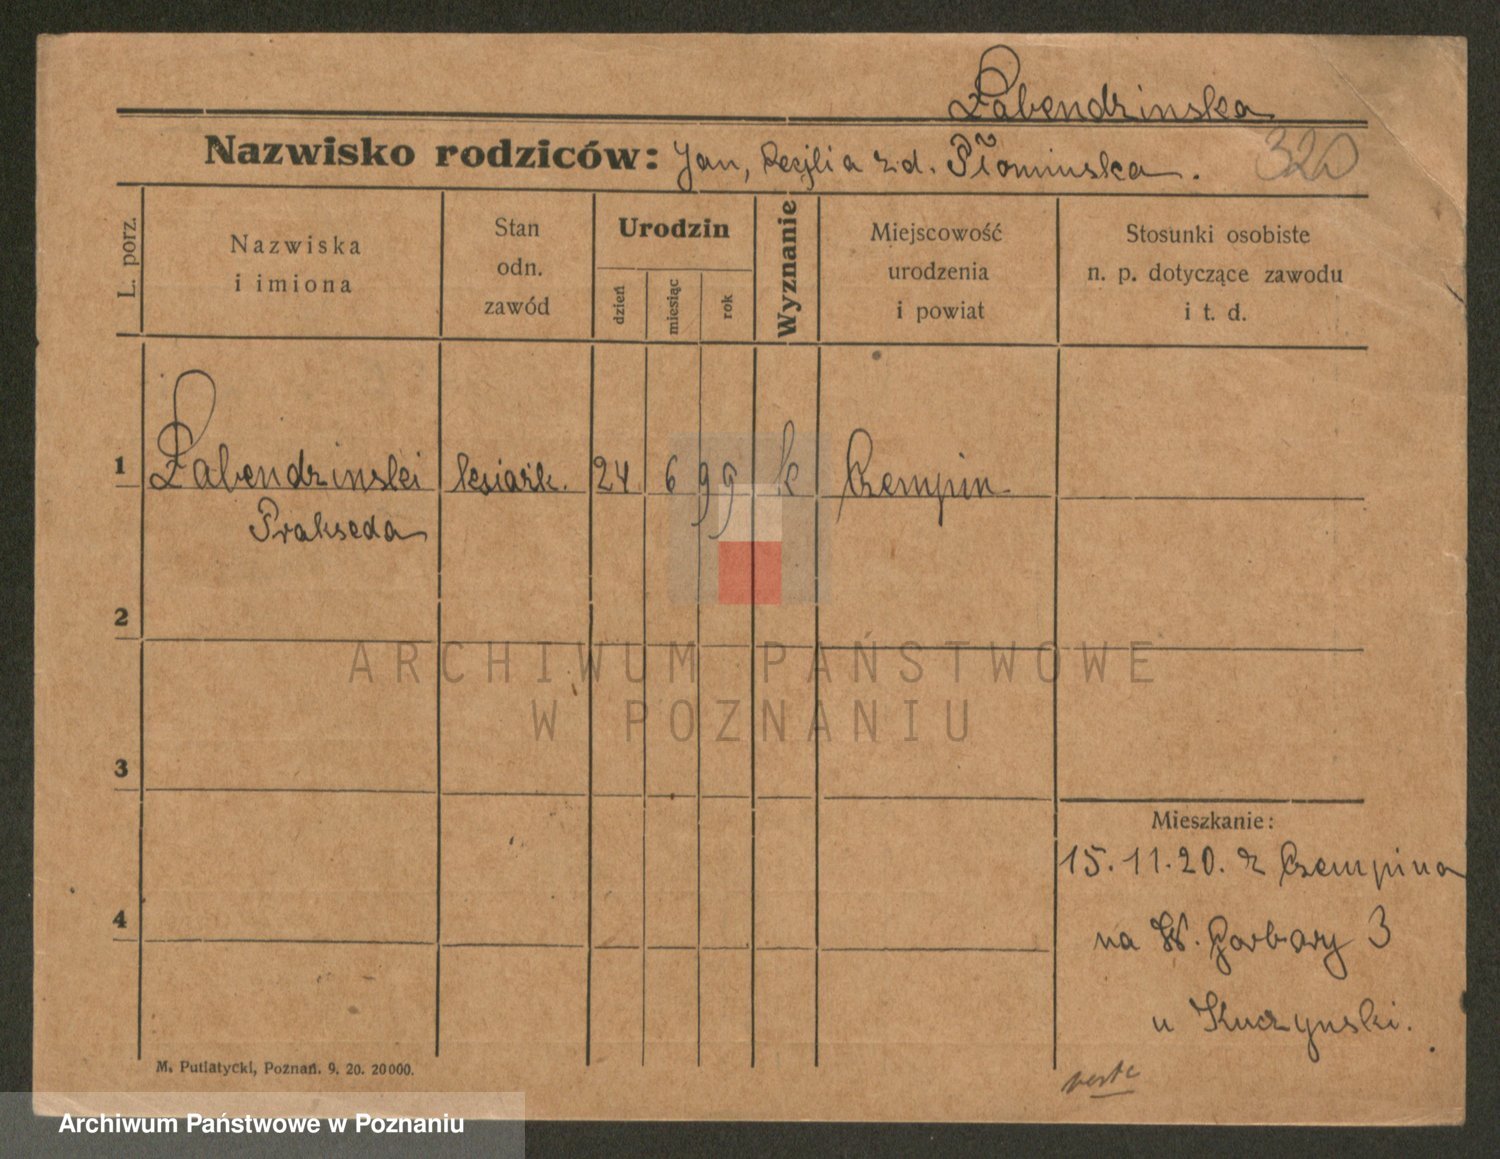 Łabendzinska
Nazwisko rodziców: Jan, Cecylia z d. Płominska.
320
L. porz.
Nazwiska
i imiona
Stan
odn.
zawód
Urodzin
dzień
miesiąc
rok
Wyznanie
Miejscowość
urodzenia
i powiat
Stosunki osobiste
n. p. dotyczące zawodu
i t. d.
1 Łabendzinski książk. 24 6 99 k Czempin
Prakseda
2
ARCHIWUM PAŃSTWOWE
W POZNANIU
3
Mieszkanie:
15.11.20. z Czempina
4
na W. Garbary 3
u Kuczynski.
M. Putiatycki, Poznań. 9. 20. 20000.
Archiwum Państwowe w Poznaniu